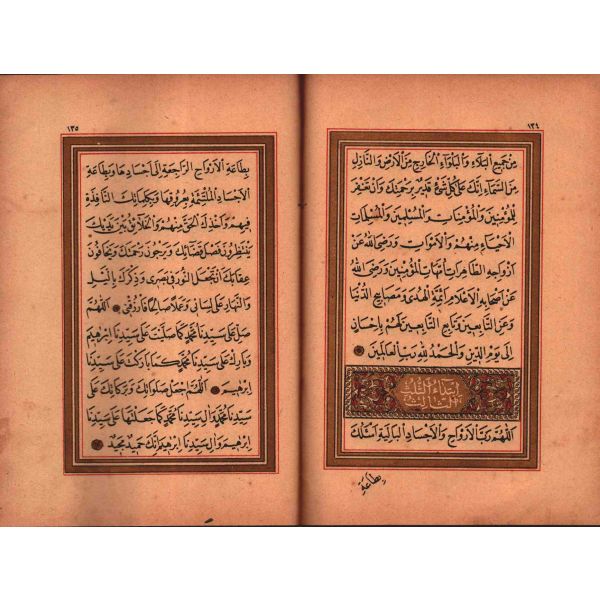 ١٣٤
مِنْ جَمِيعِ الْبَلَاءِ وَالْبَلْوَاءِ الْخَارِجِ مِنَ الْاَرْضِ وَالنَّازِلِ
مِنَ السَّمَاءِ اِنَّكَ عَلَى كُلِّ شَيْءٍ قَدِيرٌ بِرَحْمَتِكَ وَاَنْ تَغْفِرَ
لِلْمُؤْمِنِينَ وَالْمُؤْمِنَاتِ وَالْمُسْلِمِينَ وَالْمُسْلِمَاتِ
الْاَحْيَاءِ مِنْهُمْ وَالْاَمْوَاتِ وَرَضِيَ اللهُ عَنْ
اَزْوَاجِهِ الطَّاهِرَاتِ اُمَّهَاتِ الْمُؤْمِنِينَ وَرَضِيَ اللهُ
عَنْ اَصْحَابِهِ الْاَعْلَامِ اَئِمَّةِ الْهُدَى وَمَصَابِيحِ الدُّنْيَا
وَعَنِ التَّابِعِينَ وَتَابِعِ التَّابِعِينَ لَهُمْ بِاِحْسَانٍ
اِلَى يَوْمِ الدِّينِ وَالْحَمْدُ لِلّهِ رَبِّ الْعَالَمِينَ
اِبْتِدَاءُ الثُّلُثِ
الثَّالِثِ
اَللّهُمَّ رَبَّ الْاَرْوَاحِ وَالْاَجْسَادِ الْبَالِيَةِ اَسْئَلُكَ
بِطَاعَةِ
١٣٥
بِطَاعَةِ الْاَرْوَاحِ الرَّاجِعَةِ اِلَى اَجْسَادِهَا وَبِطَاعَةِ
الْاَجْسَادِ الْمُلْتَئِمَةِ بِعُرُوقِهَا وَبِكَلِمَاتِكَ النَّافِذَةِ
فِيهِمْ وَاَخْذِكَ الْحَقَّ مِنْهُمْ وَالْخَلَائِقُ بَيْنَ يَدَيْكَ
يَنْتَظِرُونَ فَصْلَ قَضَائِكَ وَيَرْجُونَ رَحْمَتَكَ وَيَخَافُونَ
عِقَابَكَ اَنْ تَجْعَلَ النُّورَ فِي بَصَرِي وَذِكْرَكَ بِاللَّيْلِ
وَالنَّهَارِ عَلَى لِسَانِي وَعَمَلًا صَالِحًا فَارْزُقْنِي اَللّهُمَّ
صَلِّ عَلَى سَيِّدِنَا مُحَمَّدٍ كَمَا صَلَّيْتَ عَلَى سَيِّدِنَا اِبْرهِيمَ
وَبَارِكْ عَلَى سَيِّدِنَا مُحَمَّدٍ كَمَا بَارَكْتَ عَلَى سَيِّدِنَا
اِبْرهِيمَ اَللّهُمَّ اجْعَلْ صَلَوَاتِكَ وَبَرَكَاتِكَ عَلَى
سَيِّدِنَا مُحَمَّدٍ وَآلِ سَيِّدِنَا مُحَمَّدٍ كَمَا جَعَلْتَهَا عَلَى سَيِّدِنَا
اِبْرهِيمَ وَآلِ سَيِّدِنَا اِبْرهِيمَ اِنَّكَ حَمِيدٌ مَجِيدٌ